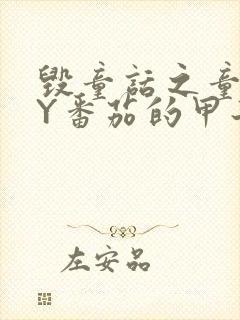 毁童话之童
Y番茄的甲
左安品